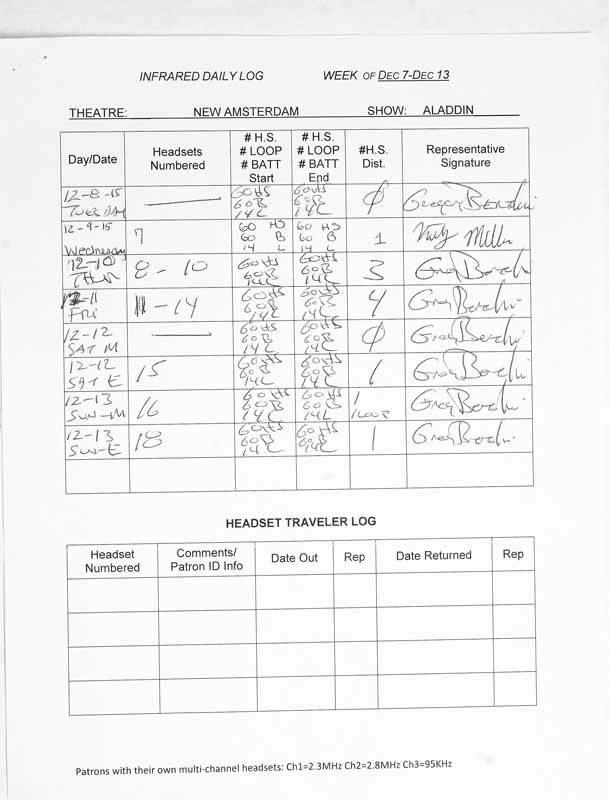 INFRARED DAILY LOG WEEK OF DEC 7-DEC 13
THEATRE: NEW AMSTERDAM SHOW: ALADDIN
Day/Date
Headsets
Numbered
# H.S.
# LOOP
# BATT
Start
# H.S.
# LOOP
# BATT
End
#H.S.
Dist.
Representative
Signature
12-8-15
TUESDAY
60HS
60B
14L
60HS
60B
14L
0
12-9-15
Wednesday
7
60 HS
60 B
14 L
60 HS
60 B
14 L
1
12-10
THU
8-10
60HS
60B
14L
60HS
60B
14L
3
12-11
FRI
11-14
60HS
60B
14L
60HS
60B
14L
4
12-12
SAT M
60HS
60B
14L
60HS
60B
14L
0
12-12
SAT E
15
60HS
60B
14L
60HS
60B
14L
1
12-13
SUN-M
16
60HS
60B
14L
60HS
60B
14L
1
1LOOP
12-13
SUN-E
18
60HS
60B
14L
60HS
60B
14L
1
HEADSET TRAVELER LOG
Headset
Numbered
Comments/
Patron ID Info
Date Out
Rep
Date Returned
Rep
Patrons with their own multi-channel headsets: Ch1=2.3MHz Ch2=2.8MHz Ch3=95KHz